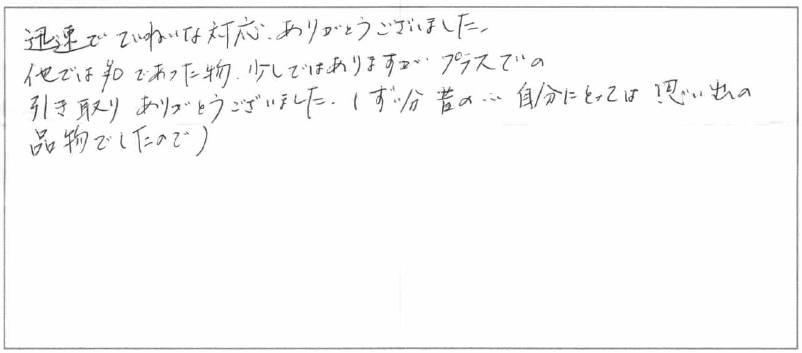 迅速でていねいな対応、ありがとうございました。
他では¥0であった物、少しではありますが プラスでの
引き取り ありがとうございました。(ずい分 昔の… 自分にとっては 思い出の
品物でしたので)